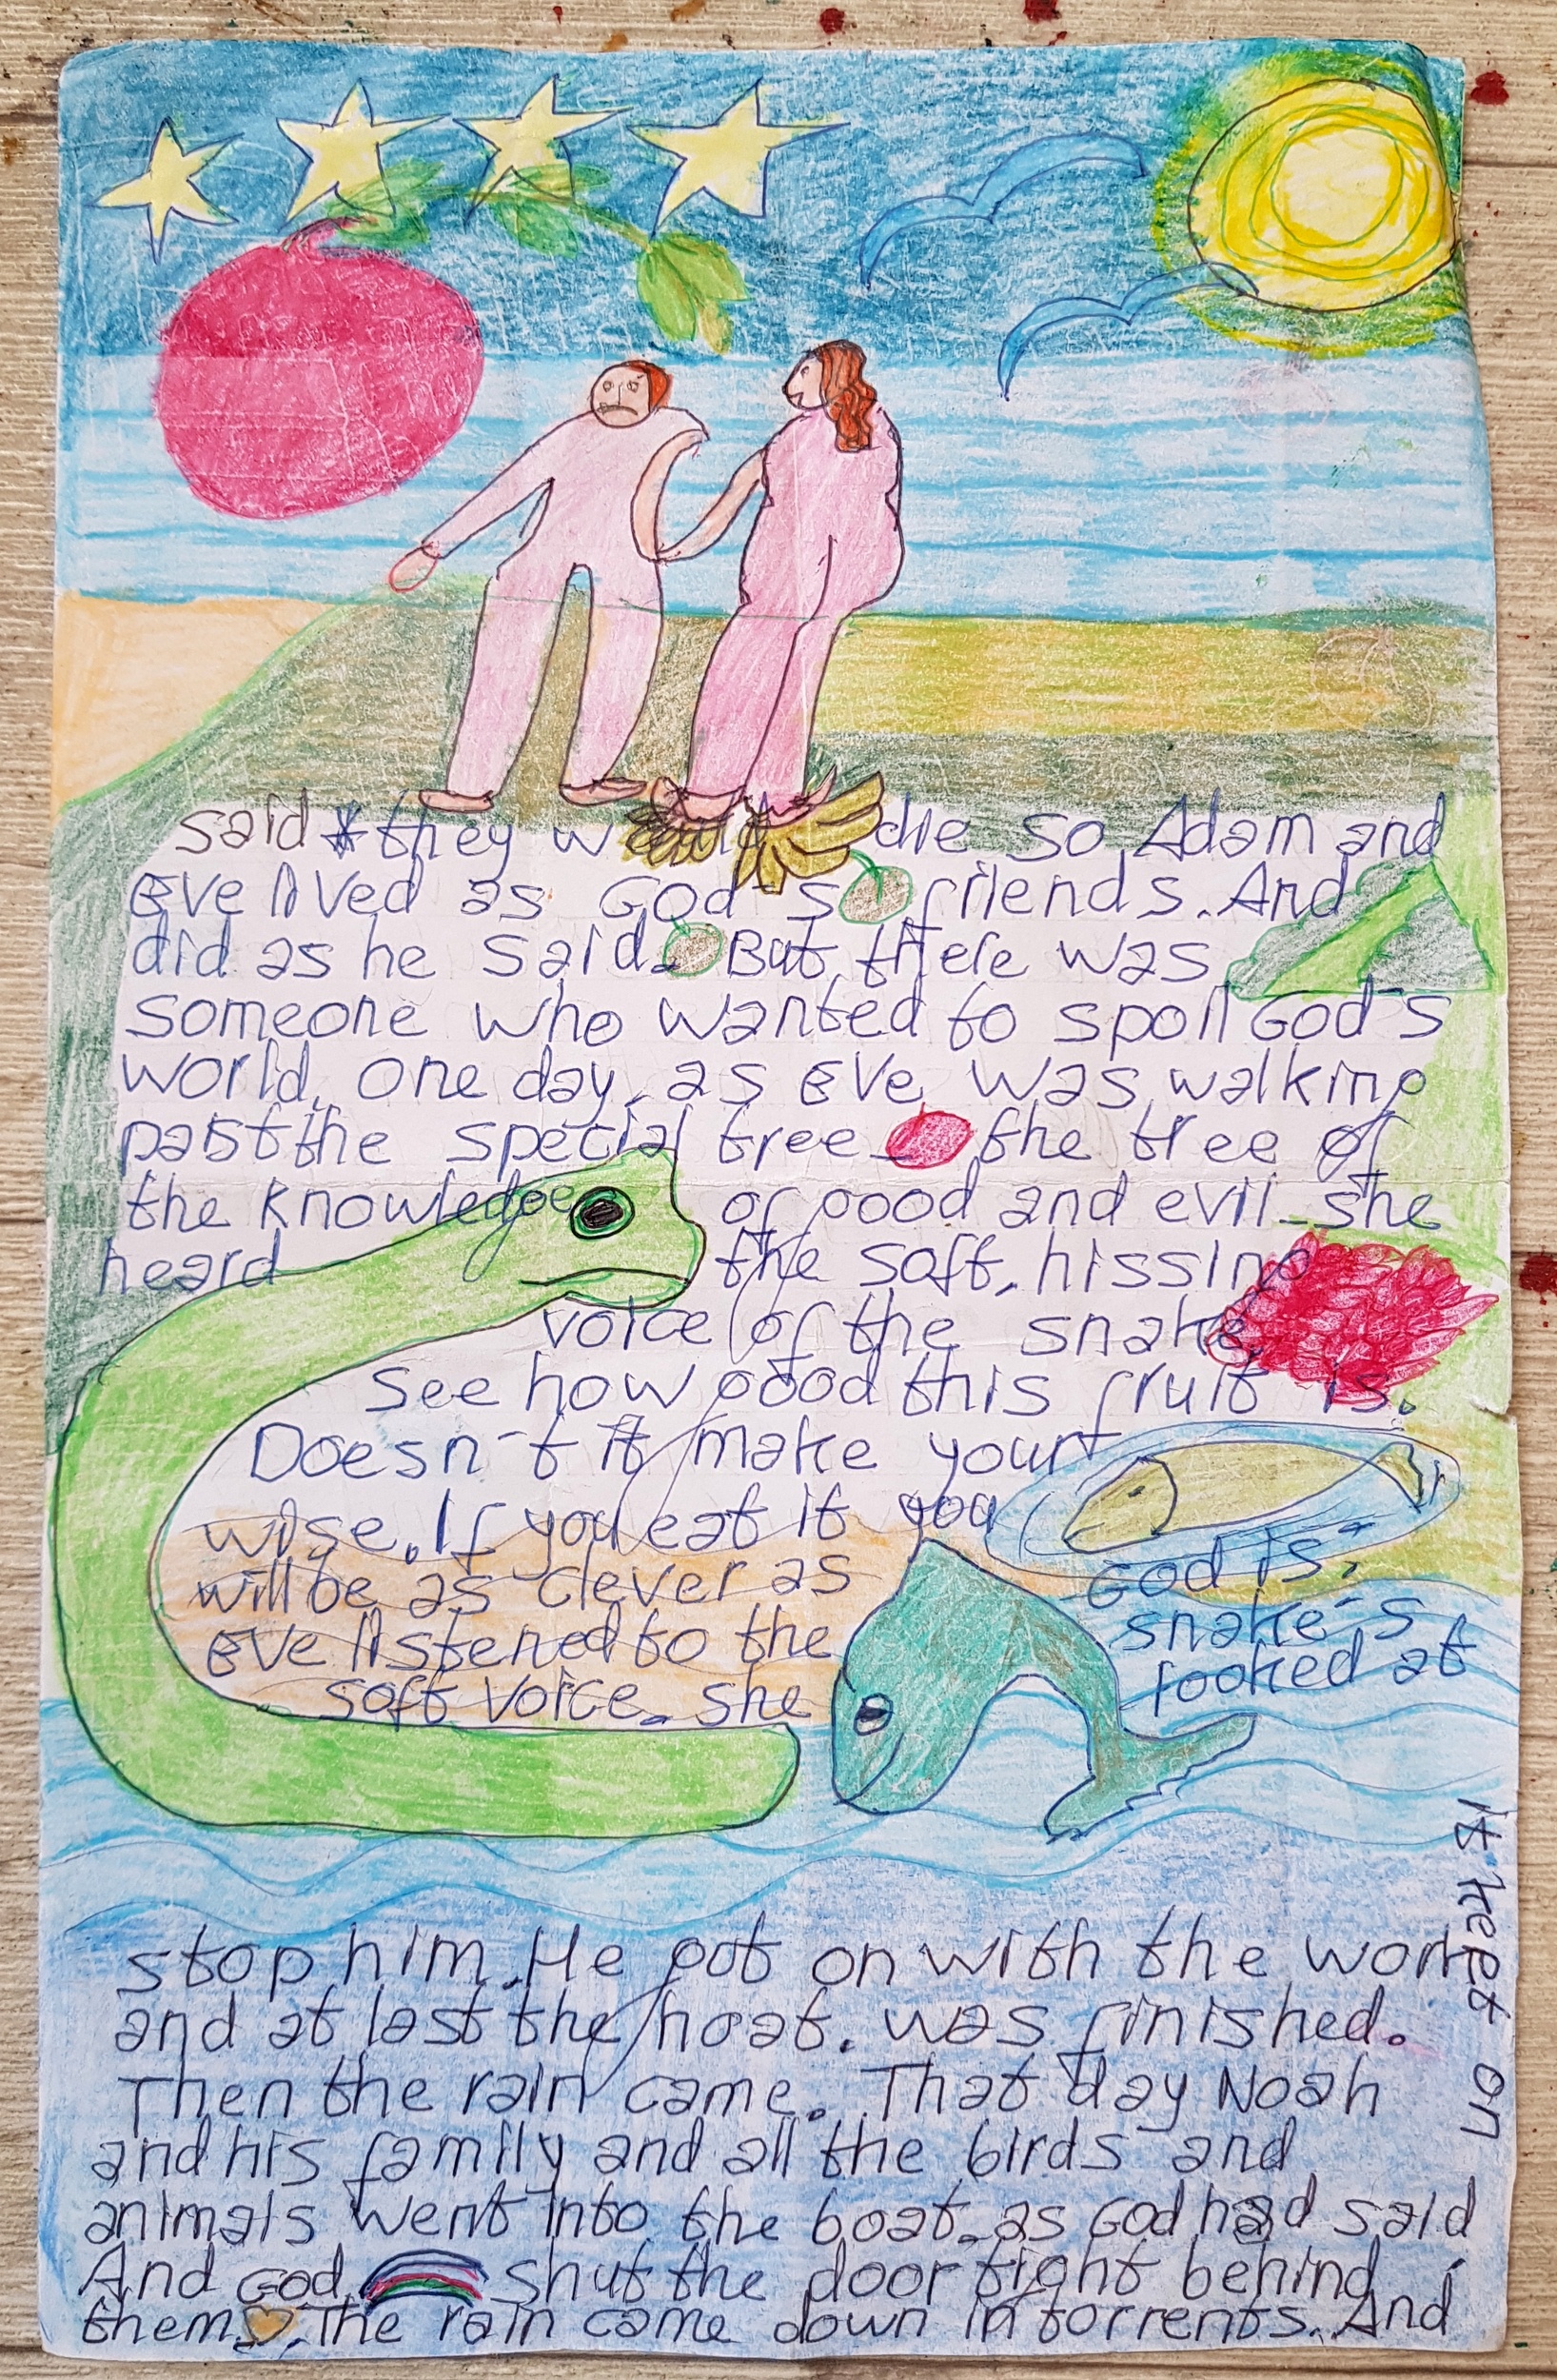 said they would die so Adam and
Eve lived as God's friends. And
did as he said. But there was
someone who wanted to spoil God's
world. One day, as Eve was walking
past the special tree - the tree of
the knowledge of good and evil - she
heard the soft, hissing
voice of the snake.
See how good this fruit is.
Doesn't it make your
wise. If you eat it you
will be as clever as God is.
Eve listened to the snake's
soft voice. she looked at
stop him. He got on with the work
and at last the boat. was finished.
Then the rain came. That day Noah
and his family and all the birds and
animals went into the boat. as God had said
And God shut the door tight behind
them. The rain came down in torrents. And
it kept on